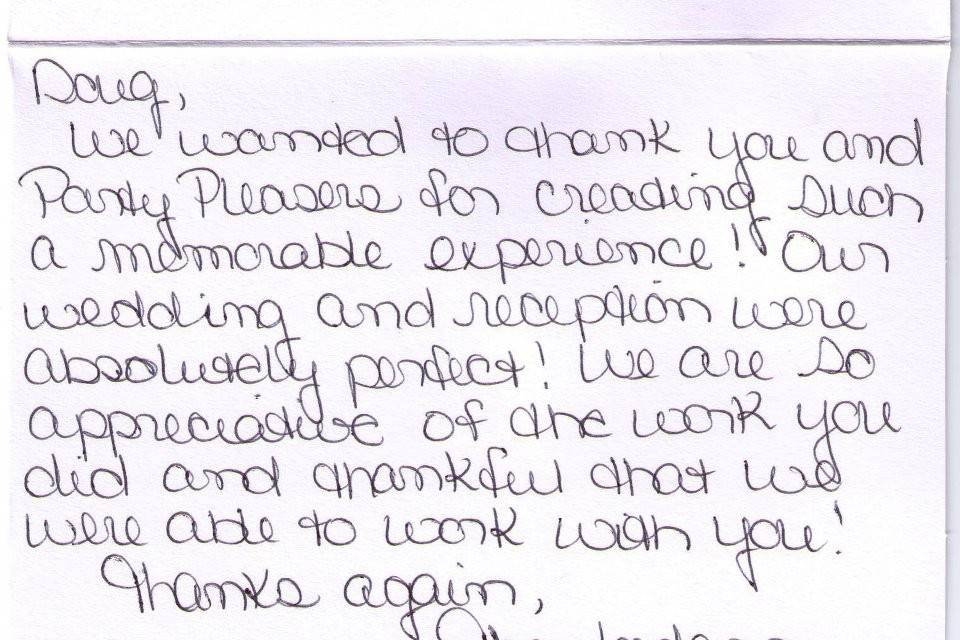 Doug,
We wanted to thank you and
Party Pleasers for creating such
a memorable experience! Our
wedding and reception were
absolutely perfect! We are so
appreciative of the work you
did and thankful that we
were able to work with you!
Thanks again,